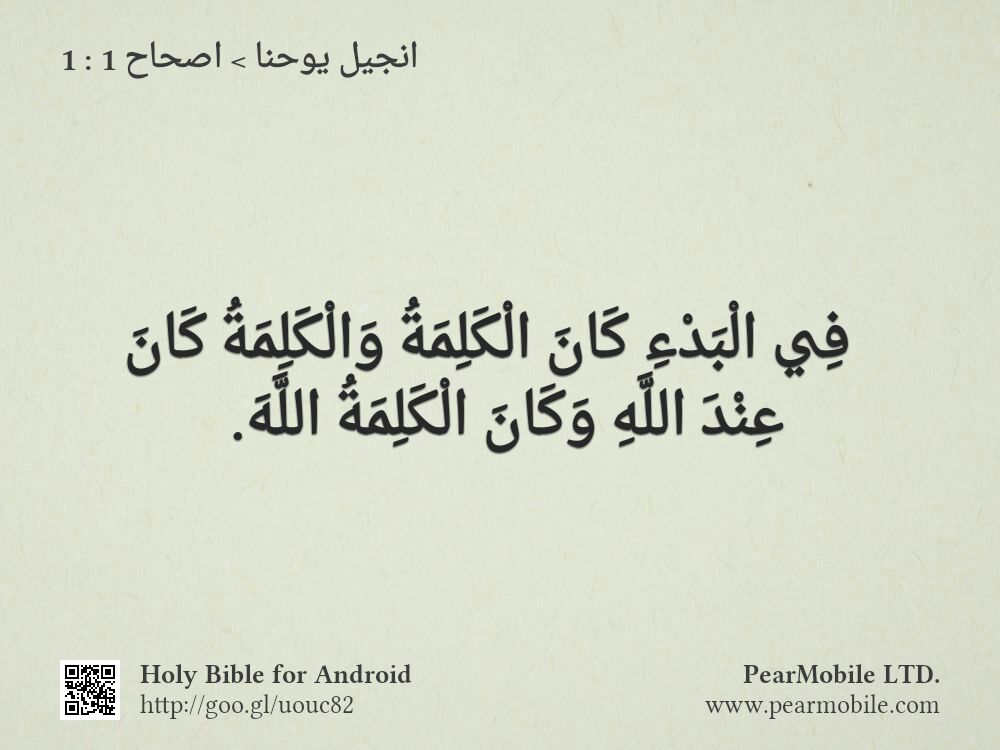 انجيل يوحنا > اصحاح 1 : 1
فِي الْبَدْءِ كَانَ الْكَلِمَةُ وَالْكَلِمَةُ كَانَ
عِنْدَ اللَّهِ وَكَانَ الْكَلِمَةُ اللَّهَ.
Holy Bible for Android
http://goo.gl/uouc82
PearMobile LTD.
www.pearmobile.com